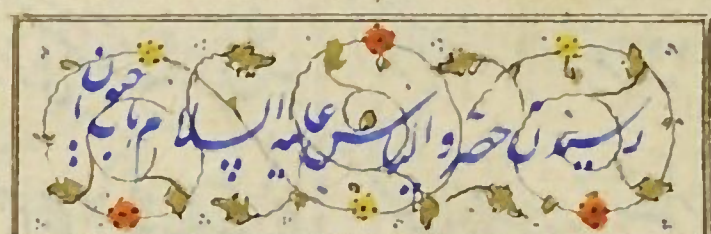 رسیدن خضر و الیاس علیه السلام بآب حیوان